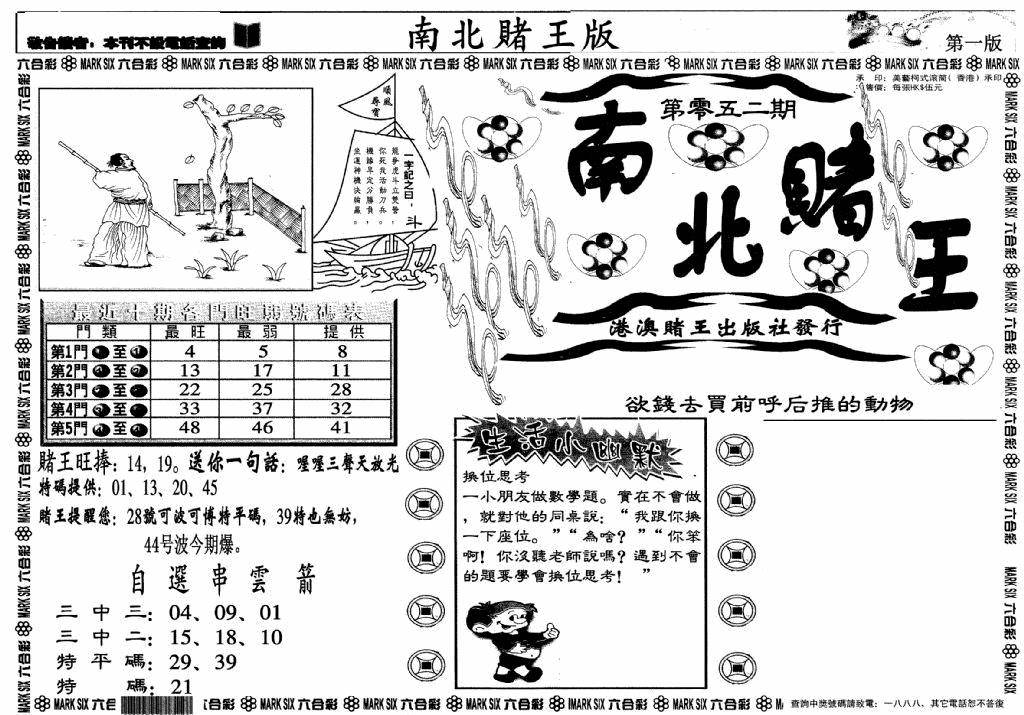 敬告讀者：本刊不設電話查詢
南北賭王版
第一版
六合彩 MARK SIX 六合彩 MARK SIX 六合彩 MARK SIX 六合彩 MARK SIX 六合彩 MARK SIX 六合彩 MARK SIX 六合彩 MARK SIX 六合彩 MARK SIX 六合彩 MARK SIX
承 印：美藝柯式滾筒(香港)承印
售價：每張HK$伍元
順風
尋寶
一字記之曰：斗
龍爭虎斗立雙誓
你死我活動刀兵，
機緣早定分勝負，
坐運神機決輸贏。
第零五二期
南北賭王
港澳賭王出版社發行
欲錢去買前呼后推的動物
最近十期各門旺弱號碼表
門類 最旺 最弱 提供
第1門 至 4 5 8
第2門 至 13 17 11
第3門 至 22 25 28
第4門 至 33 37 32
第5門 至 48 46 41
賭王旺捧：14，19。送你一句話：喔喔三聲天放光
特碼提供：01、13、20、45
賭王提醒您：28號可波可博特平碼，39特也無妨，
44号波今期爆。
自選串雲箭
三中三：04、09、01
三中二：15、18、10
特平碼：29、39
特碼：21
生活小幽默
換位思考
一小朋友做數學題。實在不會做
，就對他的同桌說：“我跟你換
一下座位。”“為啥？”“你笨
啊！你沒聽老師說嗎？遇到不會
的題要學會換位思考！”
MARK SIX 六合彩 MARK SIX 六合彩 MARK SIX 六合彩 MARK SIX 六合彩 MARK SIX 六合彩 MARK SIX 六合彩
查詢中獎號碼請致電：一八八八、其它電話恕不答復